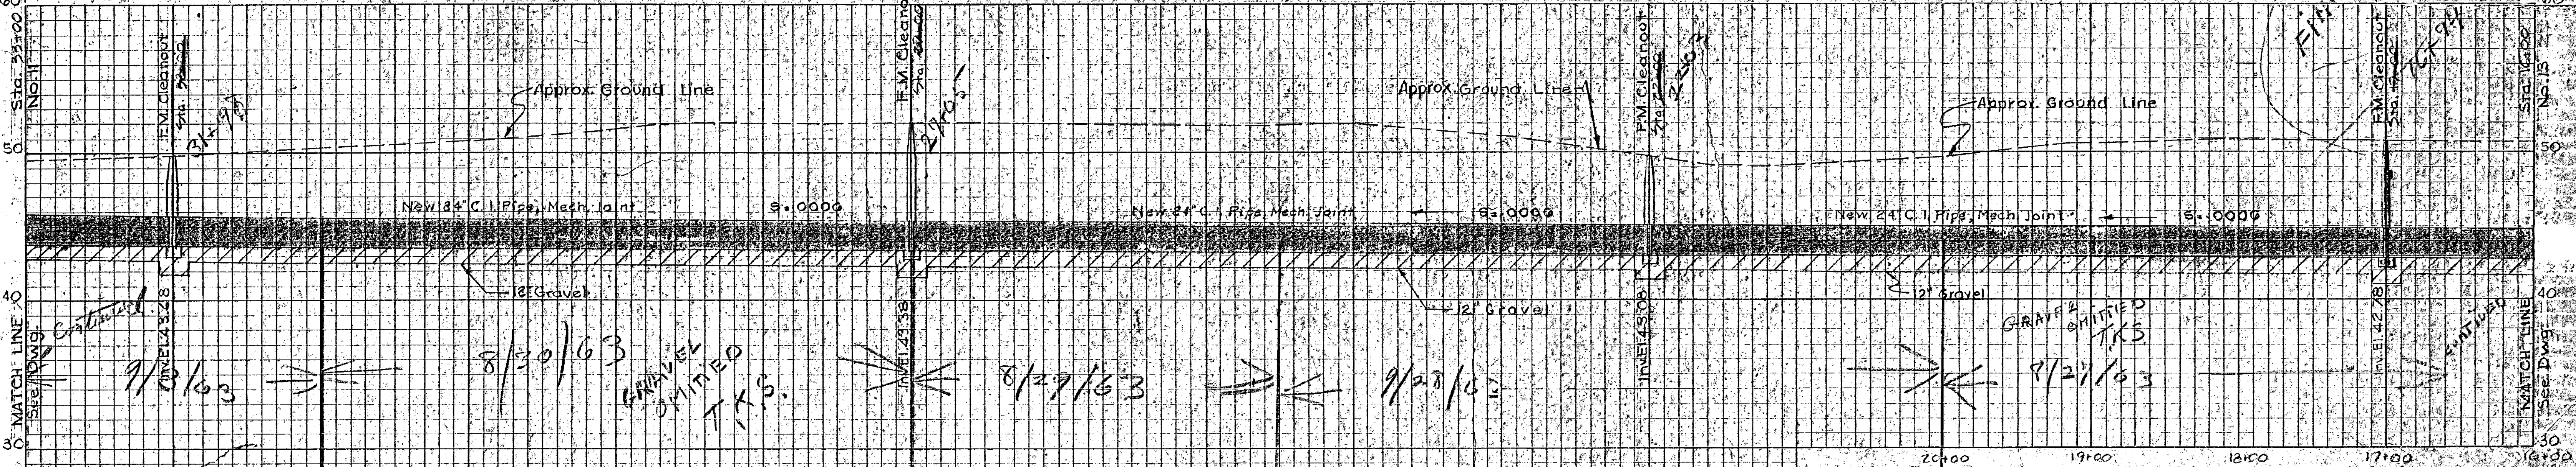 60
Sta. 33+00
No. 11
F.M. Cleanout
31+97
Approx. Ground Line
F.M. Cleano
27+05
Approx. Ground Line
F.M. Cleanout
Approx. Ground Line
Fin
F.M. Cleanout
16+94
Sta. 16+00
No. 13
50
50
New 24" C.I. Pipe, Mech. Joint
S=.0006
New 24" C.I. Pipe, Mech. Joint
S=.0006
New 24" C.I. Pipe, Mech. Joint
S=.0006
12" Gravel
12" Gravel
12" Gravel
40
40
MATCH LINE
See Dwg.
Continued
9/3/63
Inv. El. 43.68
8/30/63
GRAVEL
OMITTED
T.K.S.
Inv. El. 43.38
8/29/63
Inv. El. 43.08
GRAVEL
OMITTED
TKS
8/27/63
Inv. El. 42.78
CONTINUED
MATCH LINE
See Dwg.
30
30
20+00
19+00
18+00
17+00
16+00